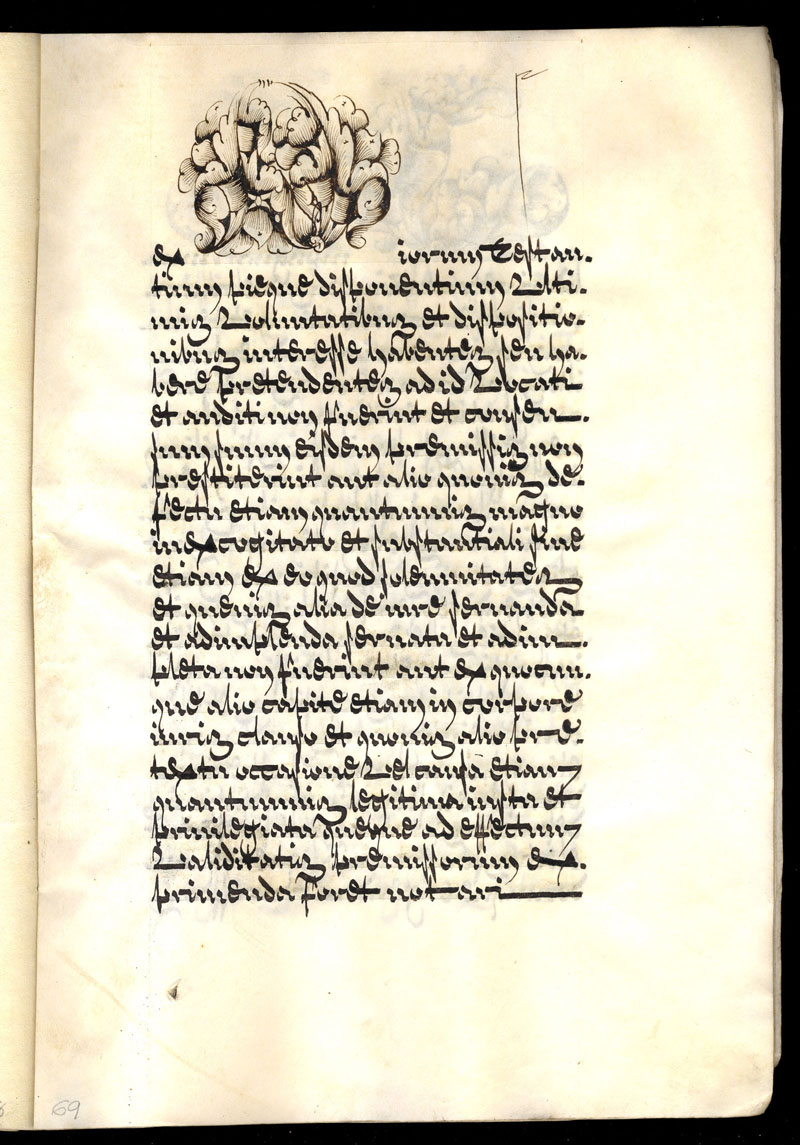 ex iorum Testan-
tium pieque disponentium Ulti-
mis Voluntatibus et dispositio-
nibus interesse habentes seu ha-
bere pretendentes ad id Vocati
et auditi non fuerint et consen-
sum suum eisdem premissis non
prestiterint aut alio quouis de-
fectu etiam quantumuis magno
inexcogitato et substantiali siue
etiam ex eo quod solemnitates
et queuis alia de iure seruanda
et adimplenda seruata et adim-
pleta non fuerint aut ex quocum-
que alio capite etiam in corpore
iuris clauso et quouis alio pre-
textu occasione Vel causa etiam
quantumuis legitima iusta et
priuilegiata queque ad effectum
Validitatis premissorum ex-
primenda foret notari
69